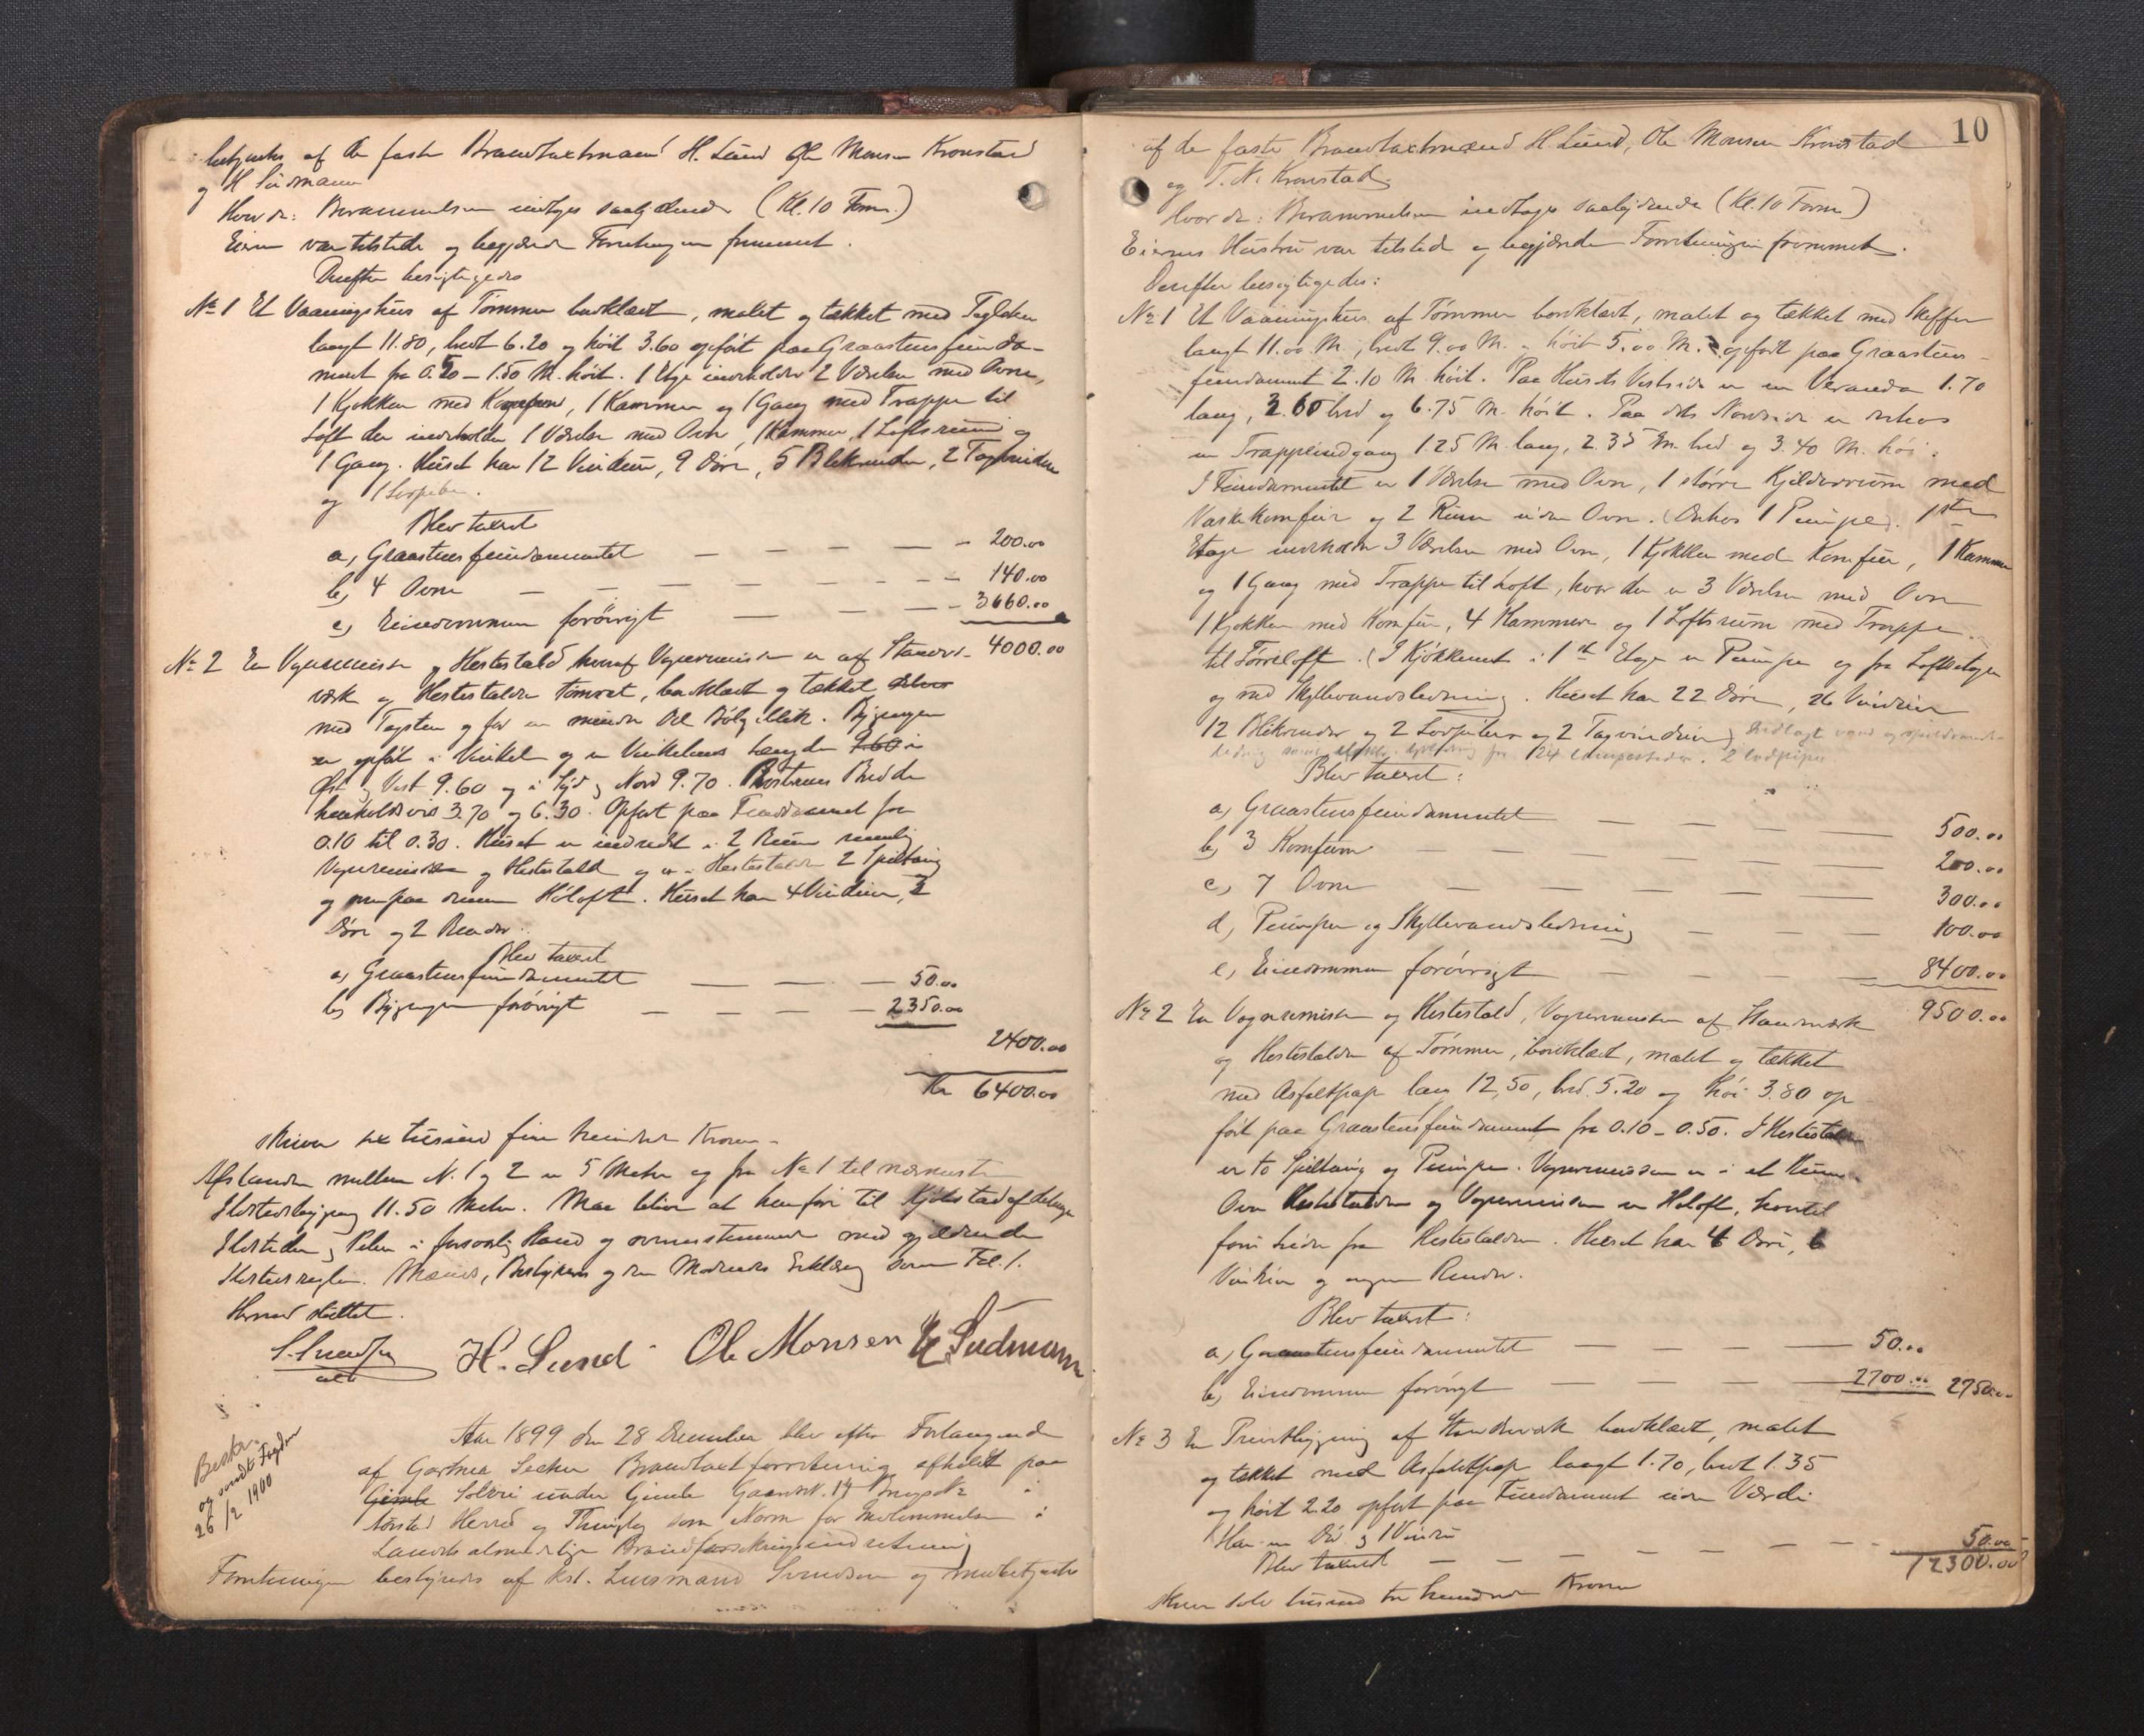 betjentes af de faste Brandtaxtmænd H. Lund Ole Monsen Kronstad
og H Sudmann
Hvor da: Berammelsen indtoges saalydende (Kl. 10 Form.)
Eieren var tilstede og begjærede Forretningen fremmet.
Derefter besigtigedes
No 1 Et Vaaningshus af Tømmer bordklædt, malet og tækket med Taglsten
langt 11.80, bredt 6.20 og høit 3.60 opført paa Graastensfunda-
ment fra 0.50 - 1.50 M. høit. 1 Etage indeholder 2 Værelser med Ovne,
1 Kjøkken med Komfur, 1 Kammer og 1 Gang med Trappe til
Loft der indeholder 1 Værelse med Ovn, 1 Kammer, 1 Loftsrum og
1 Gang. Huset har 12 Vinduer, 9 Døre, 5 Blikrender, 2 Tagvinduer
og 1
Blev taxert
a, Graastensfundamentet — — — — — 200.00
b, 4 Ovne — — — — — — 140.00
c, Eiendommen forøvrigt — — — — 3660.00
4000.00
No 2 En Vognremisse og Hestestald hvoraf Vognremissen er af Stænder-
værk og Hestestalden tømret, bordklædt og tækket
med Tagsten og for en mindre Del Bølgeblik. Bygningen
er opført i Vinkel og er Vinkelens Længde 9.60 i
Øst og Vest 9.60 og i Syd og Nord 9.70. Bredde
henholdsvis 3.70 og 6.30. Opført paa Fundament fra
0.10 til 0.30. Huset er indredt i 2 Rum nemlig
Vognremisse og Hestestald og er i Hestestalden 2 Spiltaug
og ovenpaa denne Høloft. Huset har 4 Vinduer, 3
Døre og 2 Render.
Blev taxert
a, Graastensfundamentet — — — 50.00
b, Bygningen forøvrigt — — — — 2350.00
2400.00
Kr 6400.00
skriver sex tusind fire hundrede Kroner.
Afstanden mellem N. 1 og 2 er 5 Meter og fra No 1 til nærmeste
Ildstedsbygning 11.50 Meter. Maa blive at henføre til Kjøbstadafdelingen
Ildsteder og Piber i forsvarlig Stand og overensstemmende med gjældende
Ildstedsregler. Mænds, Bestyrers og den Medeiers Erklæring som Fol. 1.
Hermed sluttet.
H. Lund Ole Monsen H. Sudmann
Beskr.
og sendt Fogden
26/2 1900
Aar 1899 den 28 December blev efter Forlangende
af Gartner Brandtaxtforretning afholdt paa
Gimle Solbei under Gimle Gaardsn. 14 Brugs No i
Aarstad Herred og Thinglag som Norm for Medlemmelse i
Landets almindelige Brandforsikringsindretning
Forretningen bestyredes af Kst. Lensmand Svendsen og medbetjentes
10
af de faste Brandtaxtmænd H Lund, Ole Monsen Kronstad
og T. N. Kronstad.
Hvor da: Berammelsen indtoges saalydende (Kl. 10 Form)
Eierens Hustru var tilstede og begjærede Forretningen fremmet.
Derefter besigtigedes:
No 1 Et Vaaningshus af Tømmer bordklædt, malet og tækket med Skiffer
langt 11.00 M., bredt 9.00 M. og høit 5.00 M. opført paa Graastens-
fundament 2.10 M. høit. Paa Husets Vestside er en Veranda 1.70
lang, 2.60 bred og 6.75 M. høit. Paa dets Nordside er anbr.
en Trappeindgang 1.25 M. lang, 2.35 M. bred og 3.40 M. høi.
I Fundamentet er 1 Værelse med Ovn, 1 større Kjælderrum med
Vaskekomfur og 2 Rum uden Ovn. (Anbr. 1 Pumpe). 1ste
Etage indeholder 3 Værelser med Ovn, 1 Kjøkken med Komfur, 1 Kammer
og 1 Gang med Trappe til Loft, hvor der er 3 Værelser med Ovn
1 Kjøkken med Komfur, 4 Kammere og 1 Loftsrum med Trappe
til Tørreloft. (I Kjøkkenet i 1ste Etage er Pumpe og fra Loftsetagen
og ned Skyllevandsledning. Huset har 22 Døre, 26 Vinduer
12 Blikrender og 2 Lodpiber og 2 Tagvinduer) Indlagt vand og spildevands-
ledning samt elektr. for 24 lampesteder. 2 lodpiper.
Blev taxert:
a, Graastensfundamentet — — — — 500.00
b, 3 Komfurer — — — — — 200.00
c, 7 Ovne — — — — — 300.00
d, Pumper og Skyllevandsledning — — — 100.00
e, Eiendommen forøvrigt — — — 8400.00
9500.00
No 2 En Vognremisse og Hestestald, Vognremissen af Standværk
og Hestestalden af Tømmer, bordklædt, malet og tækket
med Asfaltpap lang 12,50, bred 5.20 og høi 3.80 op
ført paa Graastensfundament fra 0.10 - 0.50. I Hestestalden
er to Spiltaug og Pumpe. Vognremissen er i et Rum.
Over Hestestalden og Vognremissen er Høloft, hvortil
fører fra Hestestalden. Huset har 4 Døre, 6
Vinduer og ingen Render.
Blev taxert:
a, Graastensfundamentet — — — — 50.00
b, Eiendommen forøvrigt — — — — 2700.00 2750.00
No 3 En Privetbygning af Standværk bordklædt, malet
og tækket med Asfaltpap langt 1.70, bredt 1.35
og høit 2.20 opført paa Fundament uden Værdi
Har en Dør og 1 Vindu
Blev taxert — — — — — — 50.00
12300.00
skriver tolv tusind tre hundrede Kroner